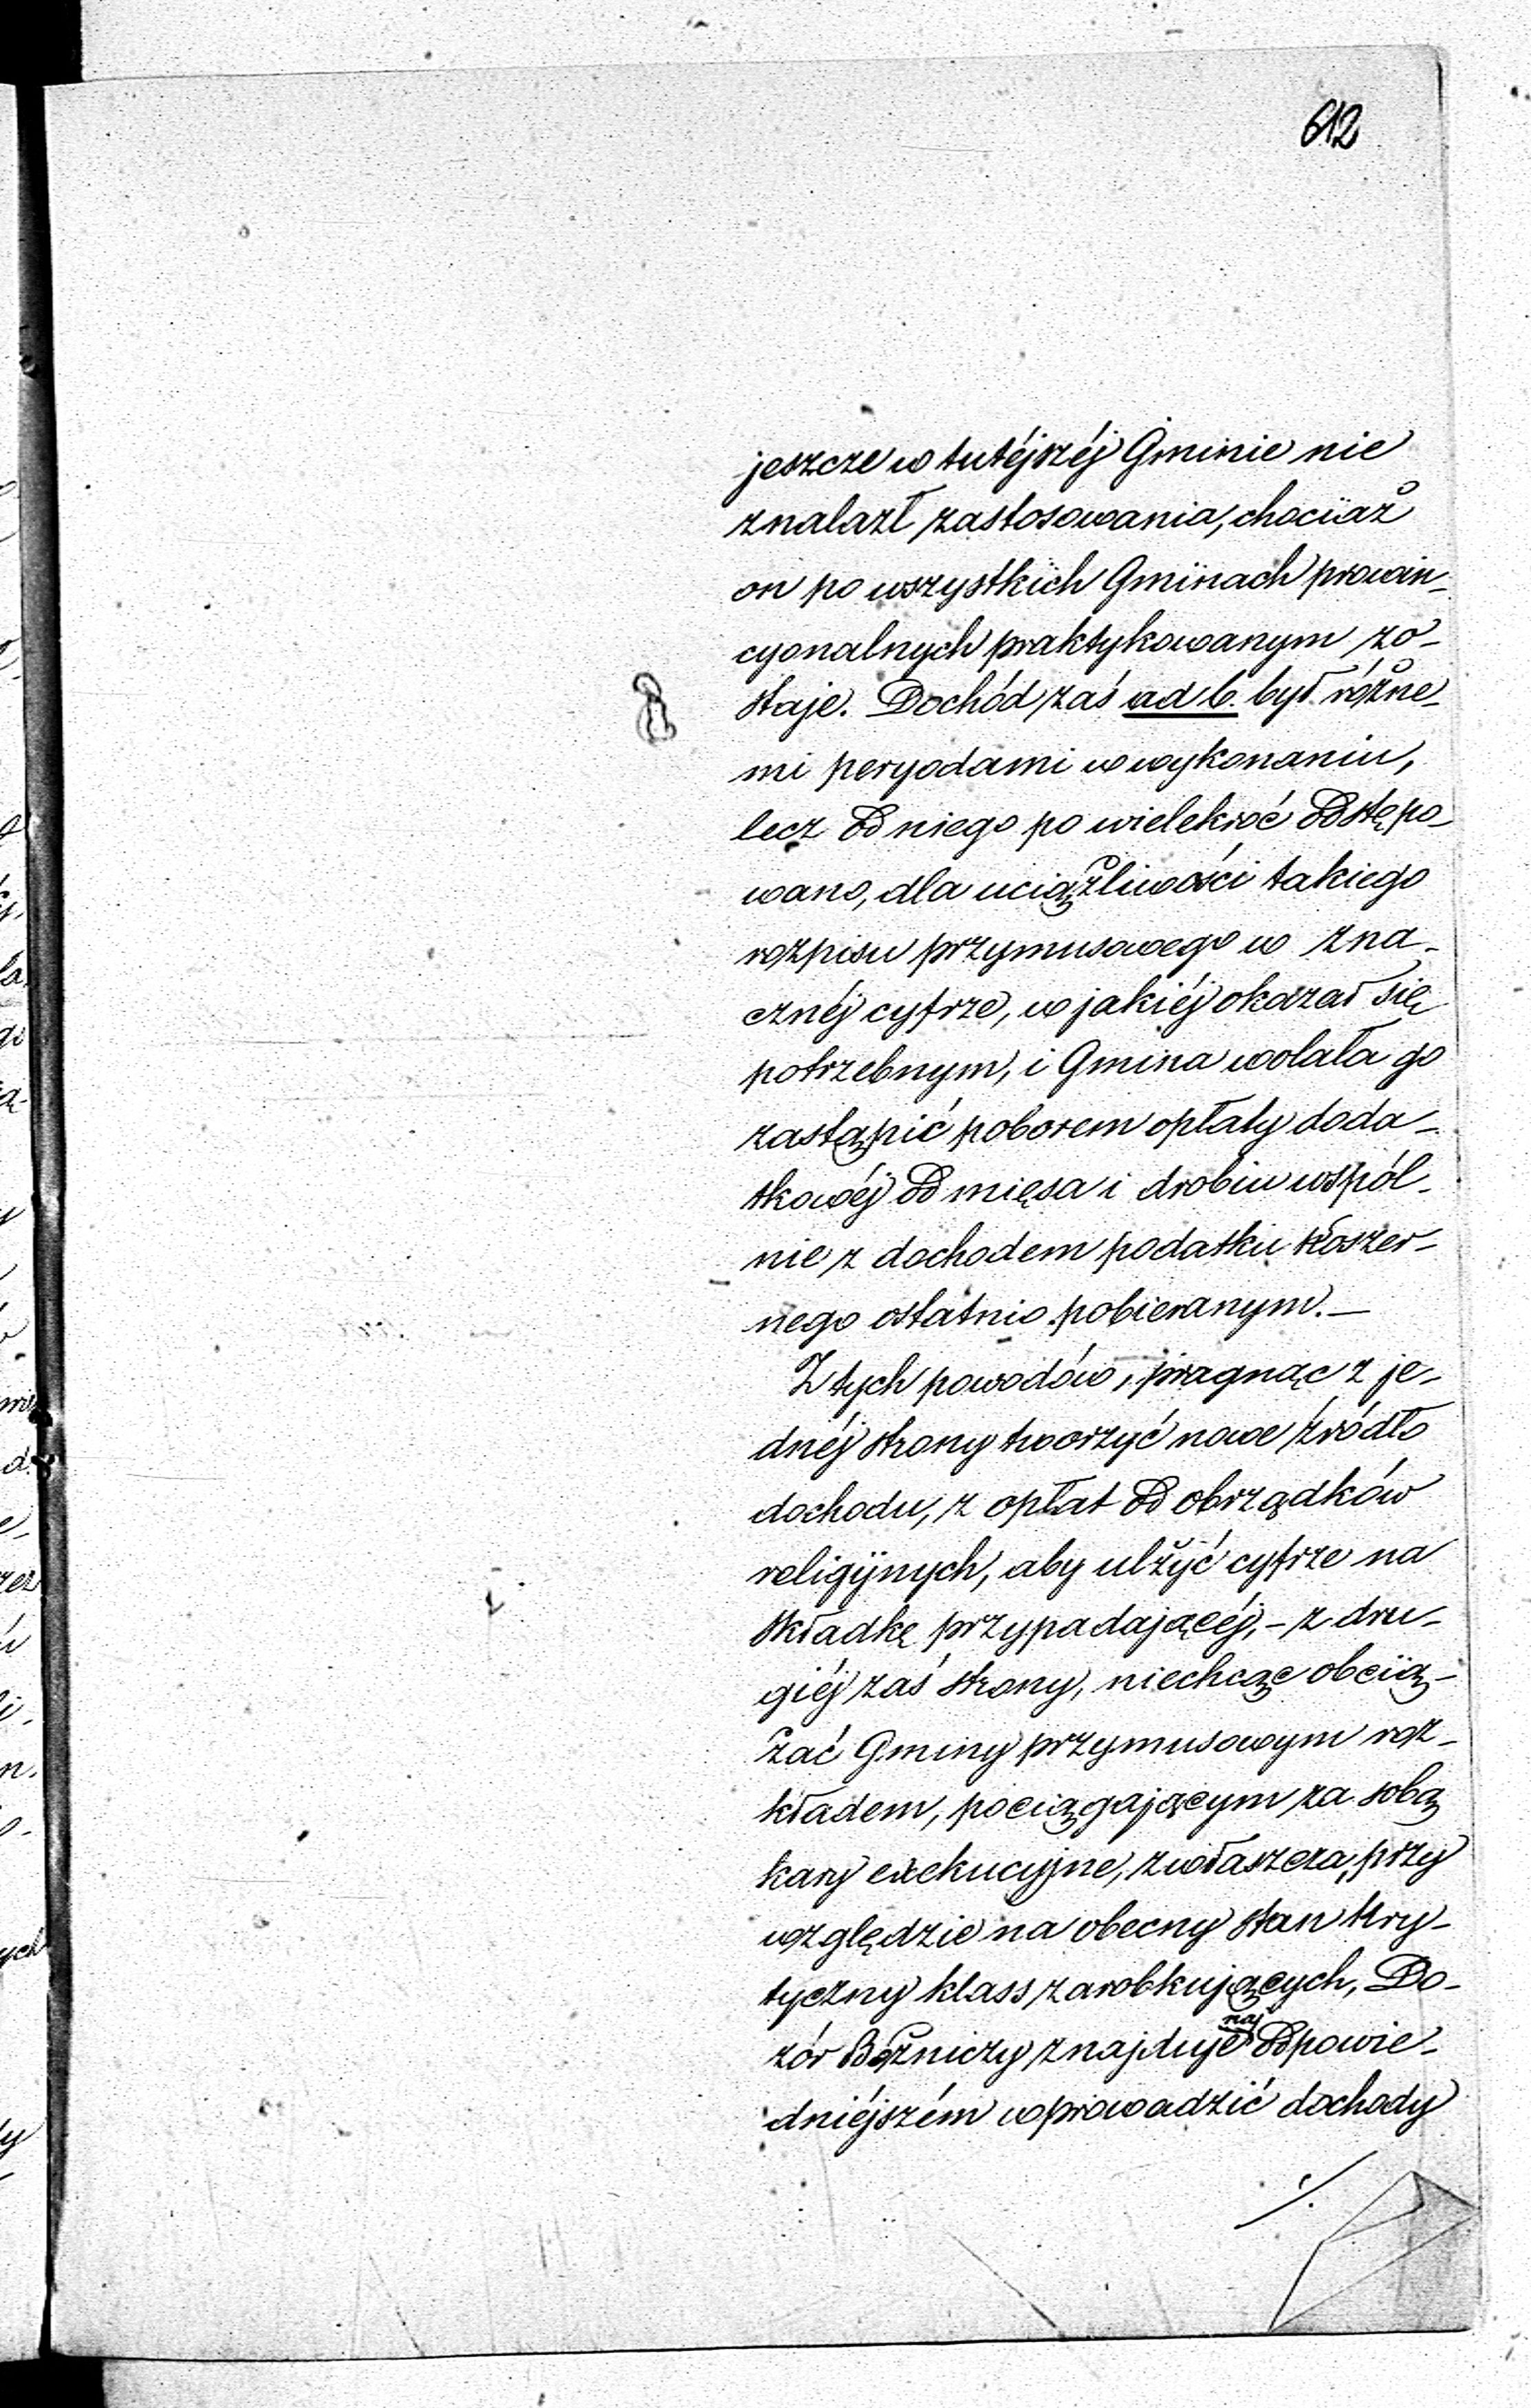 612
jeszcze w tutéjszéj Gminie nie
znalazł zastosowania, chociaż
on po wszystkich Gminach prowin-
cyonalnych praktykowanym zo-
staje. Dochód zaś ad b. był różne-
mi peryodami w wykonaniu,
lecz od niego po wielekroć odstępo-
wano, dla uciążliwości takiego
rozpisu przymusowego w zna-
cznéj cyfrze, w jakiéj okazał się
potrzebnym, i Gmina wolała go
zastąpić poborem opłaty doda-
tkowéj od mięsa i drobiu wspól-
nie z dochodem podatku koszer-
nego ostatnio pobieranym.—
Z tych powodów, pragnąc z je-
dnéj strony tworzyć nowe źródło
dochodu, z opłat od obrządków
religijnych, aby ulżyć cyfrze na
składkę przypadającéj,- z dru-
giéj zaś strony, niechcąc obcią-
żać Gminy przymusowym roz-
kładem, pociągającym za sobą
kary exekucyjne, zwłaszcza, przy
względzie na obecny stan kry-
tyczny klass zarobkujących, Do-
zór Bóżniczy znajduje najodpowie-
dniéjszém wprowadzić dochody
./.